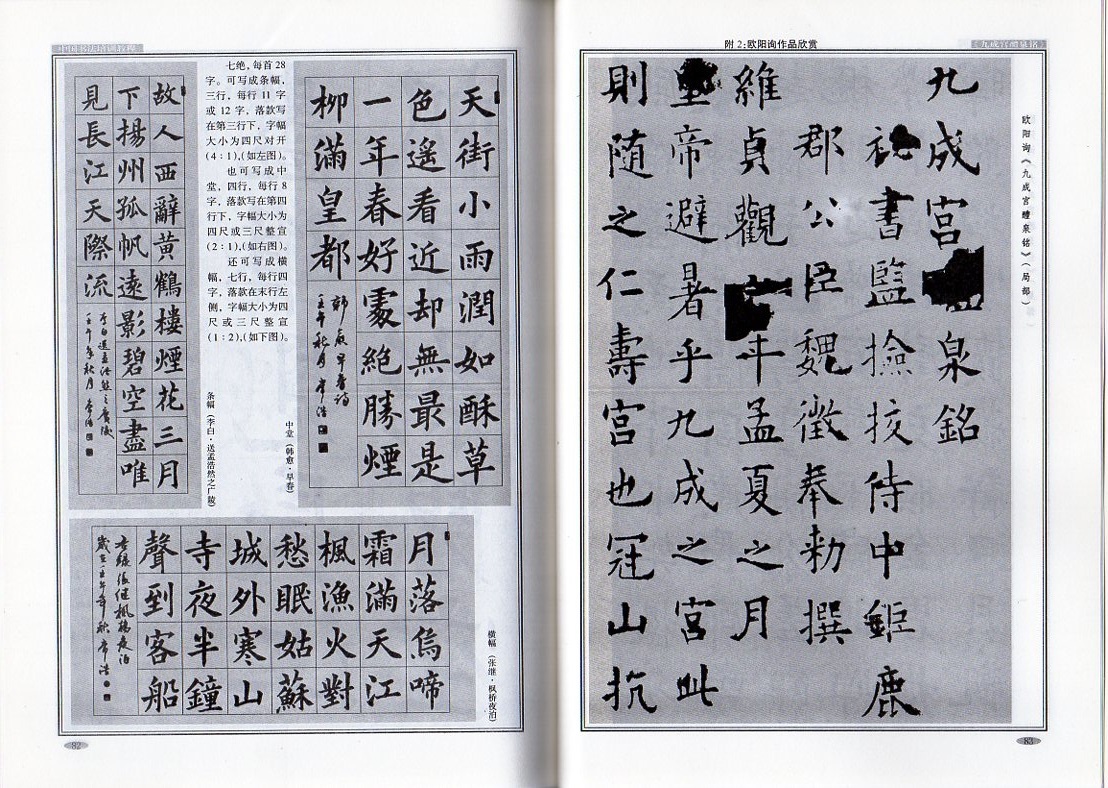 中国书法培训教程
故人西辭黄鶴楼煙花三月
下揚州孤帆遠影碧空盡唯
見長江天際流
李白送孟浩然之廣陵
壬午年秋月
七绝,每首 28
字。可写成条幅,
三行,每行 11 字
或 12 字,落款写
在第三行下,字幅
大小为四尺对开
(4:1),(如左图)。
也可写成中
堂,四行,每行 8
字,落款写在第四
行下,字幅大小为
四尺或三尺整宣
(2:1),(如右图)。
还可写成横
幅,七行,每行四
字,落款在末行左
侧,字幅大小为四
尺或三尺整宣
(1:2),(如下图)。
条幅(李白·送孟浩然之广陵)
天街小雨潤如酥草
色遙看近却無最是
一年春好處絕勝煙
柳滿皇都
韩愈早春诗
壬午秋月
中堂(韩愈·早春)
月落烏啼
霜滿天江
楓漁火對
愁眠姑蘇
城外寒山
寺夜半鐘
聲到客船
張继楓橋夜泊
歲在壬午年秋
横幅(张继·枫桥夜泊)
82
附 2:欧阳询作品欣赏
《九成宫醴泉铭》
欧阳询《九成宫醴泉铭》(局部)
九成宮泉銘
秘書監撿挍侍中鉅鹿
郡公臣魏徵奉勑撰
維貞觀六年孟夏之月
皇帝避暑乎九成之宮此
則随之仁壽宮也冠山抗
83